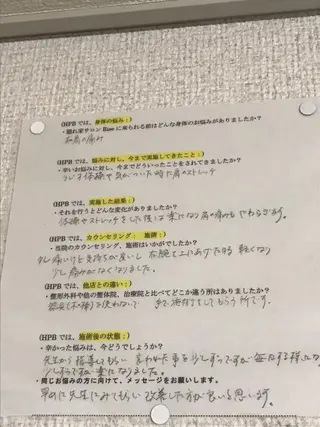 (HPBでは、身体の悩み：)
・隠れ家サロンRineに来られる前はどんな身体のお悩みがありましたか？
右肩の痛み
(HPBでは、悩みに対し、今まで実施してきたこと：)
・辛いお悩みに対し、今までどういったことをされてきましたか？
ラジオ体操や気がついた時に肩のストレッチ
(HPBでは、実施した結果：)
・それを行うとどんな変化がありましたか？
体操やストレッチをした後は楽になり肩の痛みもやわらぎます。
(HPBでは、カウンセリング・施術：)
・当院のカウンセリング、施術はいかがでしたか？
少し痛いけど気持ちが良いし右腕を上にあげた時軽くなり
少し痛みがなくなりました。
(HPBでは、他店との違い：)
・整形外科や他の整体院、治療院と比べてどこか違う所はありましたか？
器具を使わないで手で施術をしてもらう所です。
(HPBでは、施術後の状態：)
・辛かったお悩みは、今どうでしょうか？
先生から指導してもらい言われた事を少しずつですが毎日する様になり
少しずつですが楽になりました。
・同じお悩みの方に向けて、メッセージをお願いします。
早めに先生にみてもらい改善した方が良いと思います。